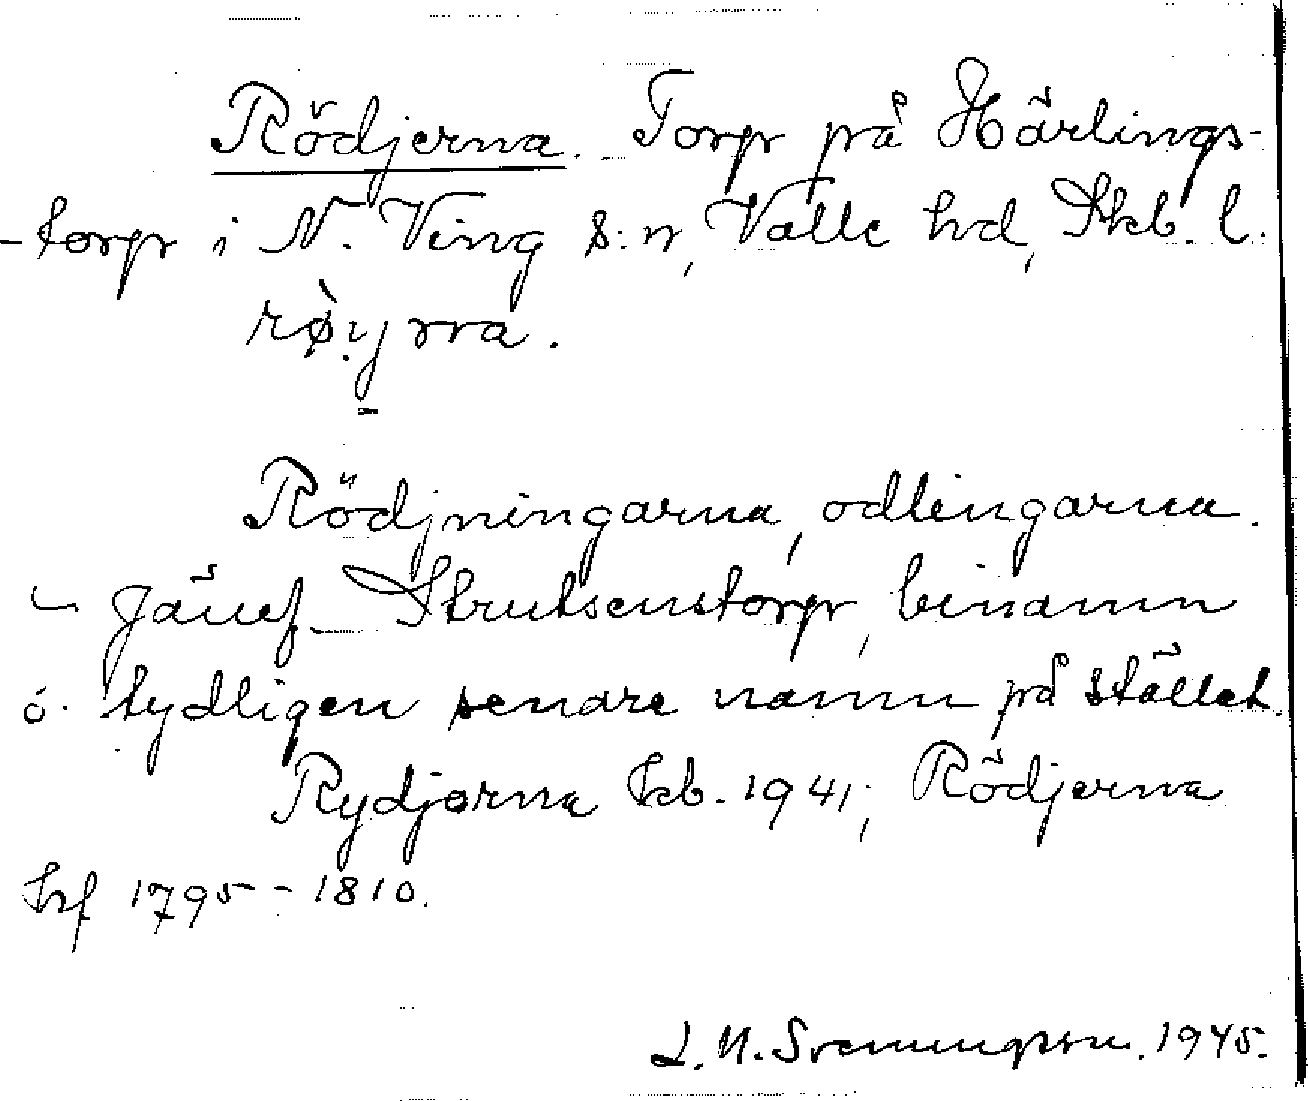 Rödjerna. Torp på Härlings-
-torp i N. Ving s:n, Valle hd, Skb. l.
Rödjningarna, odlingarna.
Jämf. Strutsenstorp, binamn
o. tydligen senare namn på stället.
Rydjorna Jkb. 1941; Rödjerna
hf 1795-1810.
L. N. Svenungsson. 1945.